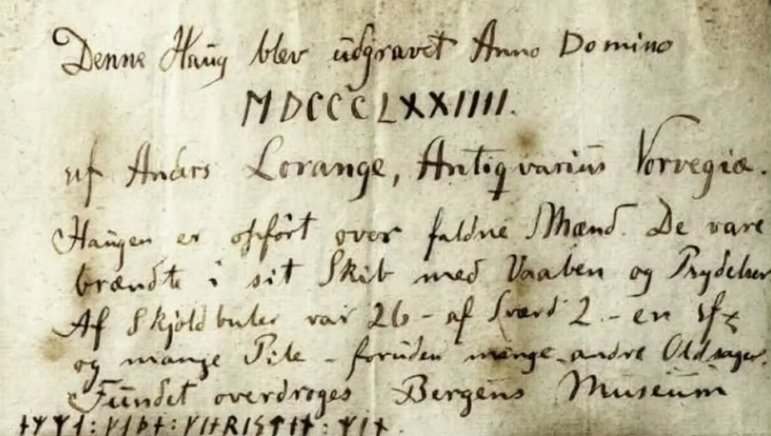 Denne Haug blev udgravet Anno Domino
MDCCCLXXIIII.
af Anders Lorange, Antiqvarius Norvegiæ.
Haugen er opført over faldne Mænd. De vare
brændte i sit Skib med Vaaben og Prydelser
Af Skjoldbuler var 26 - af Sværd 2 - en
og mange Pile - foruden mange andre Oldsager.
Fundet overdroges Bergens Museum